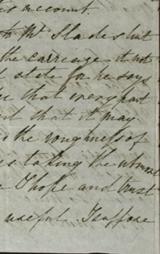 is account.
th Mr. Slade's but
the carriage is not
state for he says
that every part
it that it may
the roughness of
is taking the utmost
I hope and trust
useful. I suppose